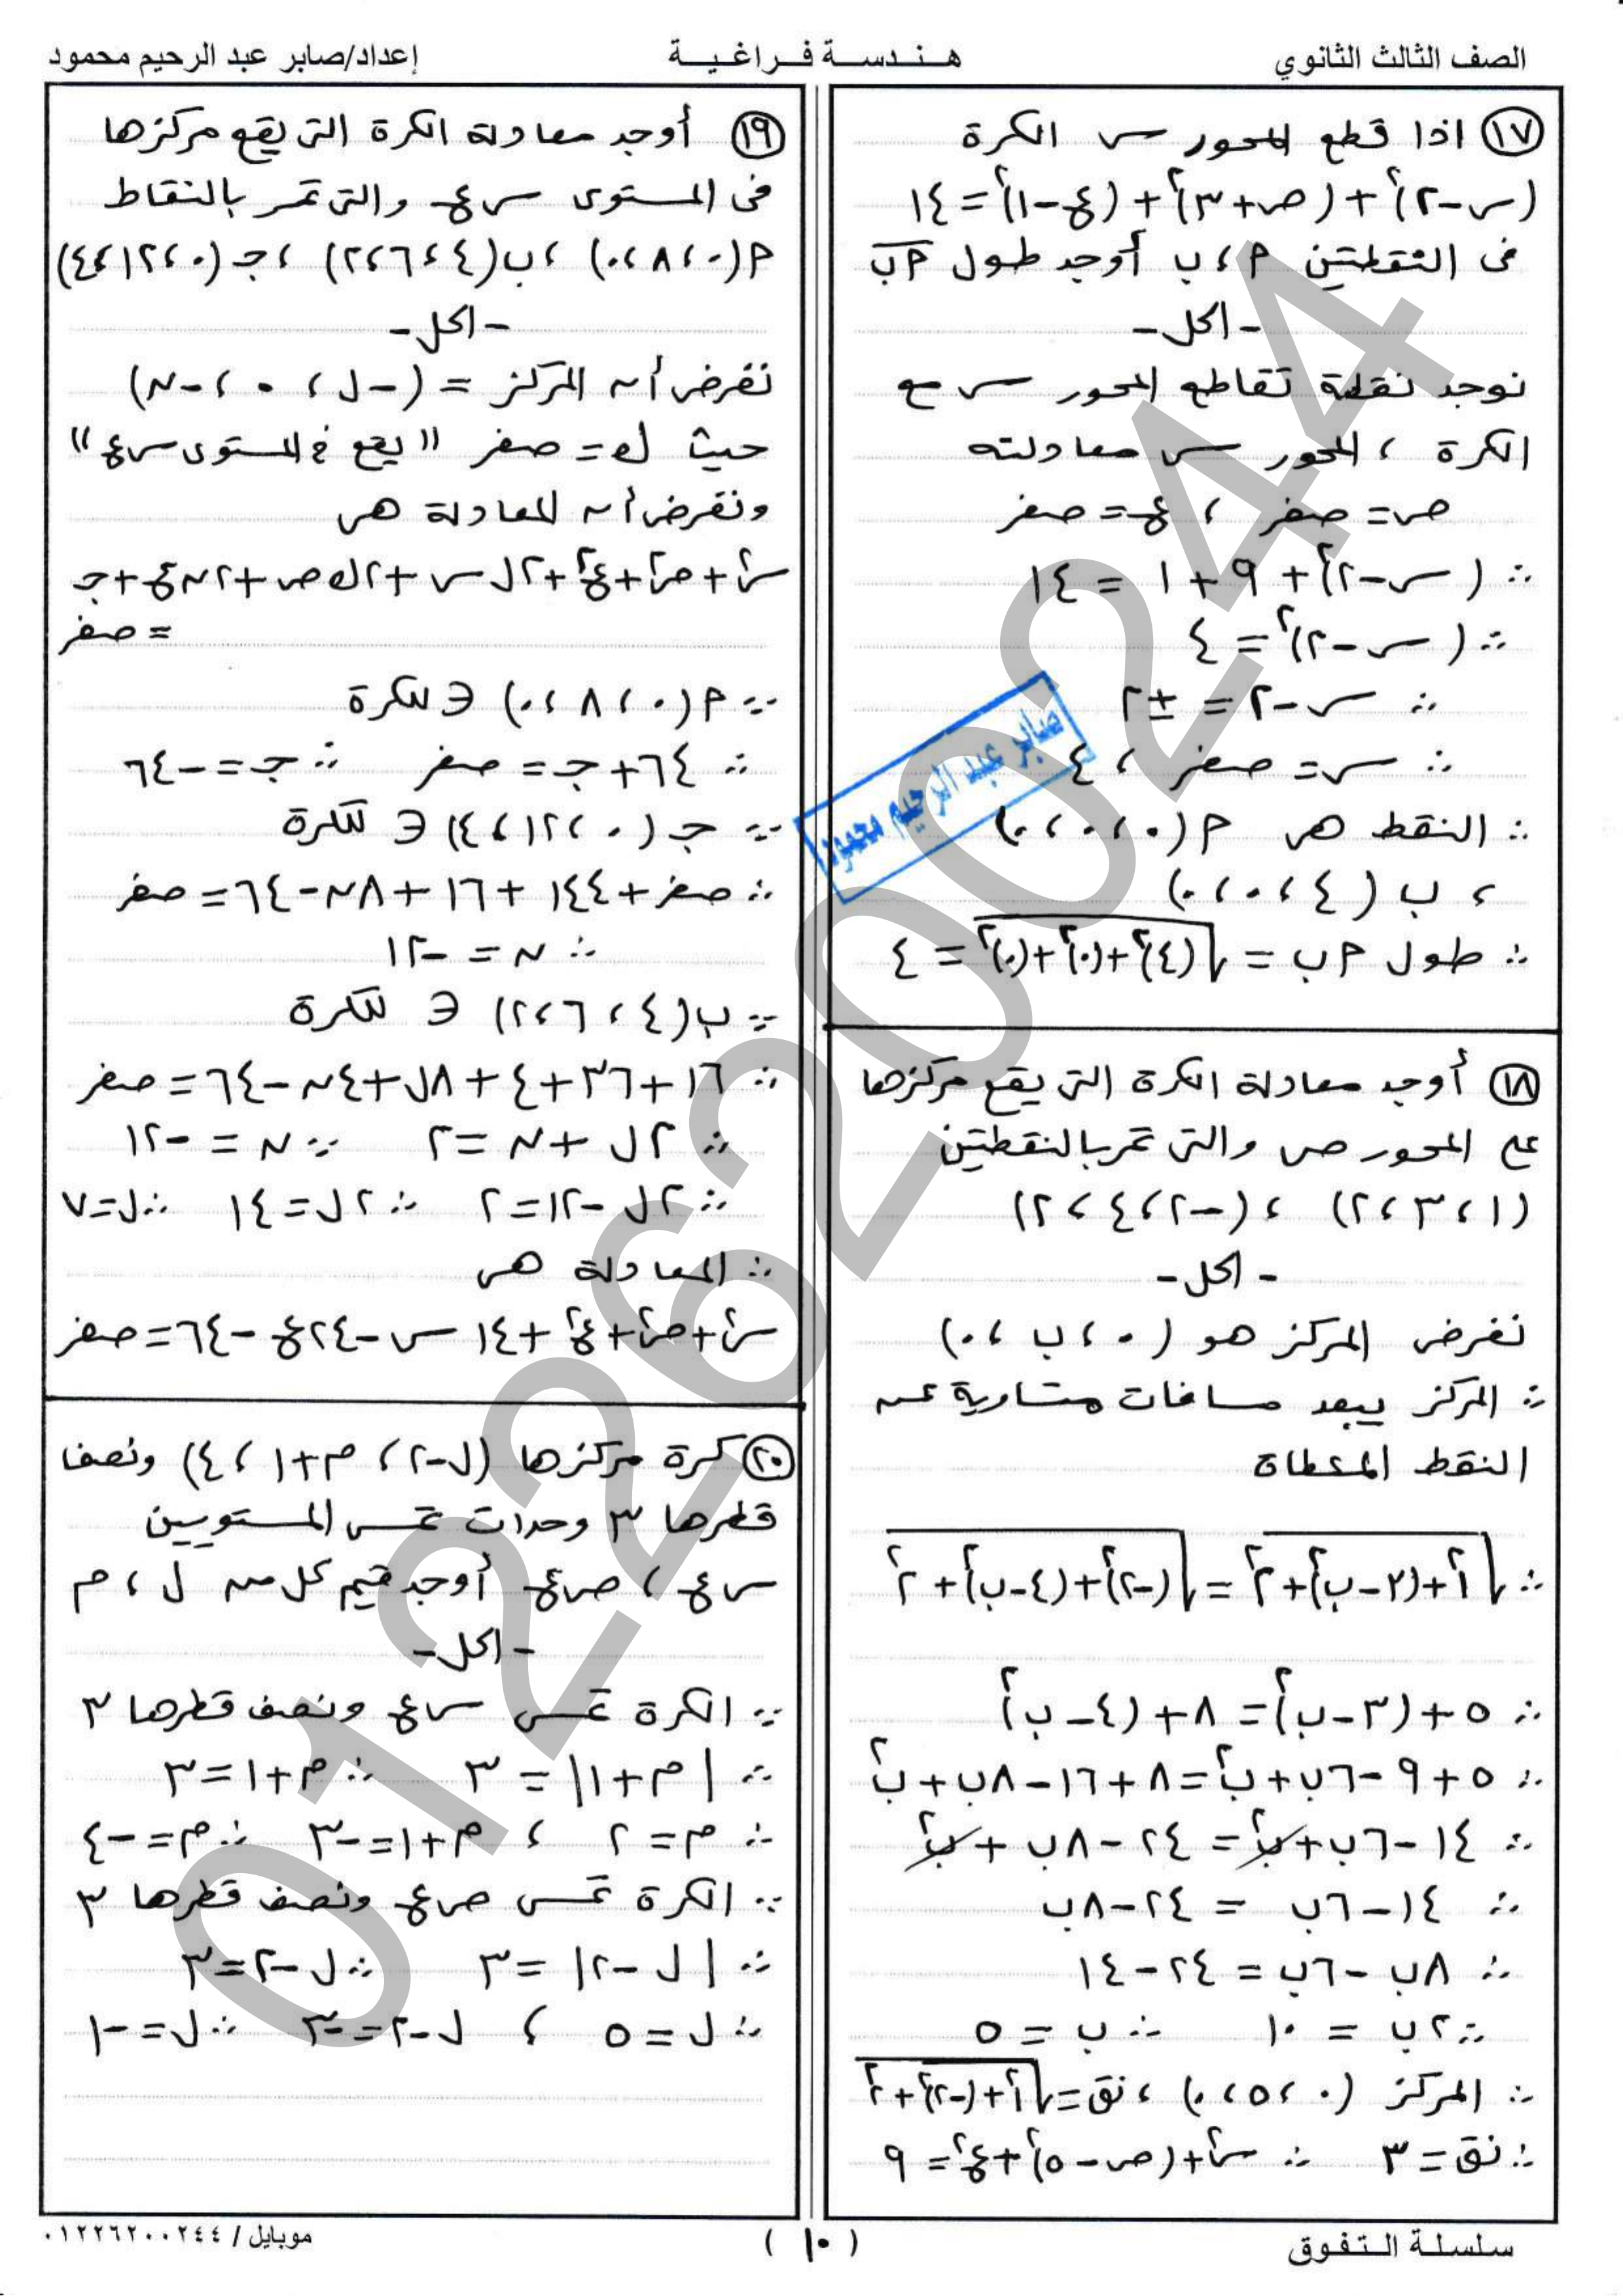 الصف الثالث الثانوي
هندسة فراغية
إعداد/صابر عبد الرحيم محمود
١٧ اذا قطع المحور س الكرة
(س-٢)² + (ص+٣)² + (ع-١)² = ١٤
فى النقطتين م، ب أوجد طول م ب
- الحل -
نوجد نقطة تقاطع المحور س مع
الكرة ، المحور س معادلته
ص = صفر ، ع = صفر
∴ (س-٢)² + ٩ + ١ = ١٤
∴ (س-٢)² = ٤
∴ س-٢ = ±٢
∴ س = صفر ، ٤
∴ النقط هى م (٠،٠،٠)
، ب (٤،٠،٠)
∴ طول م ب = √((٤)² + (٠)² + (٠)²) = ٤
صابر عبد الرحيم محمود
١٨ أوجد معادلة الكرة التى يقع مركزها
على المحور ص والتى تمر بالنقطتين
(١،٣،٢) ، (-٢،٤،٢)
- الحل -
نفرض المركز هو (٠،ب،٠)
∴ المركز يبعد مسافات متساوية عن
النقط المعطاة
∴ √(١² + (٣-ب)² + ٢²) = √((-٢)² + (٤-ب)² + ٢²)
∴ ٥ + (٣-ب)² = ٨ + (٤-ب)²
∴ ٥ + ٩ - ٦ب + ب² = ٨ + ١٦ - ٨ب + ب²
∴ ١٤ - ٦ب + ب² = ٢٤ - ٨ب + ب²
∴ ١٤ - ٦ب = ٢٤ - ٨ب
∴ ٨ب - ٦ب = ٢٤ - ١٤
∴ ٢ب = ١٠ ∴ ب = ٥
∴ المركز (٠،٥،٠) ، نق = √(١² + (-٢)² + ٢²)
∴ نق = ٣ ∴ س² + (ص-٥)² + ع² = ٩
١٩ أوجد معادلة الكرة التى يقع مركزها
فى المستوى س ع والتى تمر بالنقاط
م(٠،٨،٠) ، ب(٤،٦،٢) ، جـ(٠،١٢،٤)
- الحل -
نفرض أن المركز = (-ل ، ٠ ، -ن)
حيث ك = صفر "يقع فى المستوى س ع"
ونفرض أن المعادلة هى
س² + ص² + ع² + ٢ل س + ٢ك ص + ٢ن ع + جـ
= صفر
∵ م(٠،٨،٠) ∈ للكرة
∴ ٦٤ + جـ = صفر ∴ جـ = -٦٤
∵ جـ (٠،١٢،٤) ∈ للكرة
∴ صفر + ١٤٤ + ١٦ + ٨ن - ٦٤ = صفر
∴ ن = -١٢
∵ ب(٤،٦،٢) ∈ للكرة
∴ ١٦ + ٣٦ + ٤ + ٨ل + ٤ن - ٦٤ = صفر
∴ ٢ل + ن = ٢ ∵ ن = -١٢
∴ ٢ل - ١٢ = ٢ ∴ ٢ل = ١٤ ∴ ل = ٧
∴ المعادلة هى
س² + ص² + ع² + ١٤ س - ٢٤ ع - ٦٤ = صفر
٢٠ كرة مركزها (ل-٢ ، م+١ ، ٤) ونصف
قطرها ٣ وحدات تمس المستويين
س ع ، ص ع أوجد قيم كل من ل ، م
- الحل -
∵ الكرة تمس س ع ونصف قطرها ٣
∴ |م+١| = ٣ ∴ م+١ = ٣
∴ م = ٢ ، م+١ = -٣ ∴ م = -٤
∵ الكرة تمس ص ع ونصف قطرها ٣
∴ |ل-٢| = ٣ ∴ ل-٢ = ٣
∴ ل = ٥ ، ل-٢ = -٣ ∴ ل = -١
01226200244
سلسلة التفوق
( ١٠ )
موبايل / ٠١٢٢٦٢٠٠٢٤٤